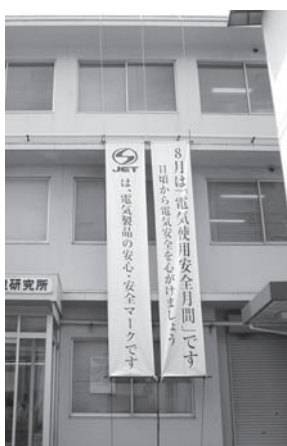 8月は「電気使用安全月間」です
日頃から電気安全を心がけましょう
JET
は、電気製品の安心・安全マークです
研究所